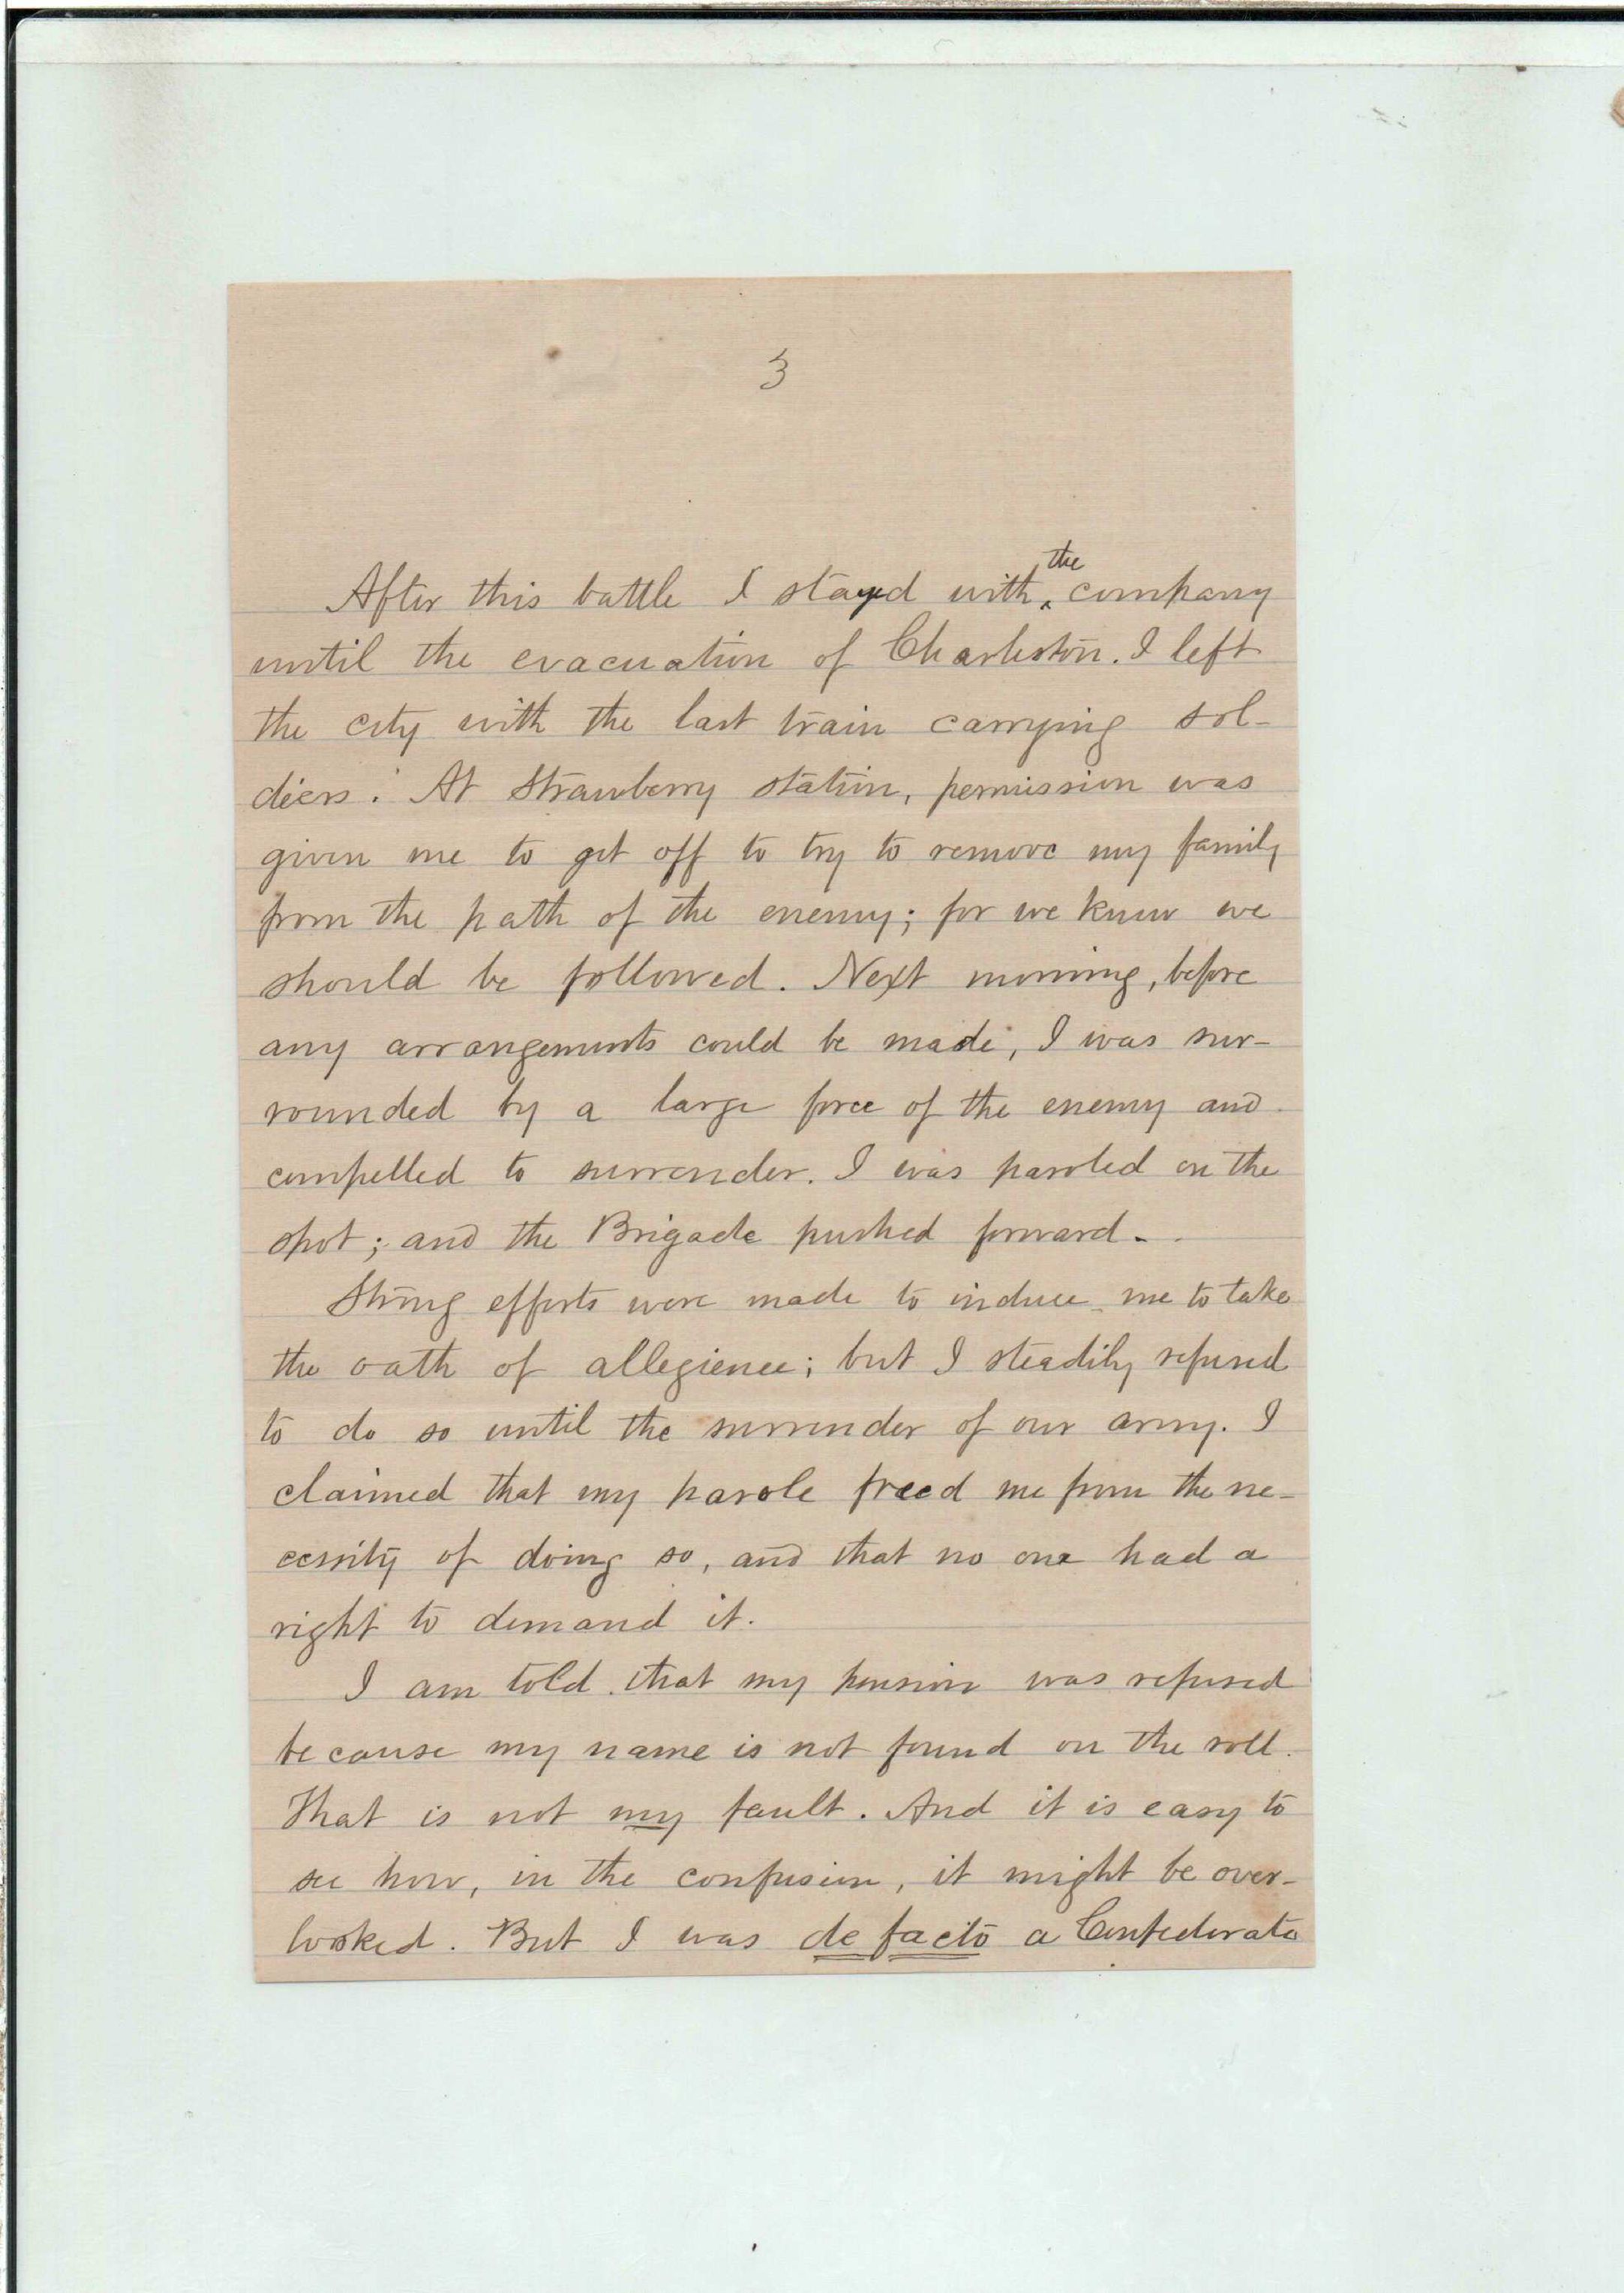 3
After this battle I stayed with the company
until the evacuation of Charleston. I left
the city with the last train carrying sol-
diers. At Strawberry station, permission was
given me to get off to try to remove my family
from the path of the enemy; for we knew we
should be followed. Next morning, before
any arrangements could be made, I was sur-
rounded by a large force of the enemy and
compelled to surrender. I was paroled on the
spot; and the Brigade pushed forward.
Strong efforts were made to induce me to take
the oath of allegience; but I steadily refused
to do so until the surrender of our army. I
claimed that my parole freed me from the ne-
cessity of doing so, and that no one had a
right to demand it.
I am told that my pension was refused
because my name is not found on the roll.
That is not my fault. And it is easy to
see how, in the confusion, it might be over-
looked. But I was de facto a Confederate